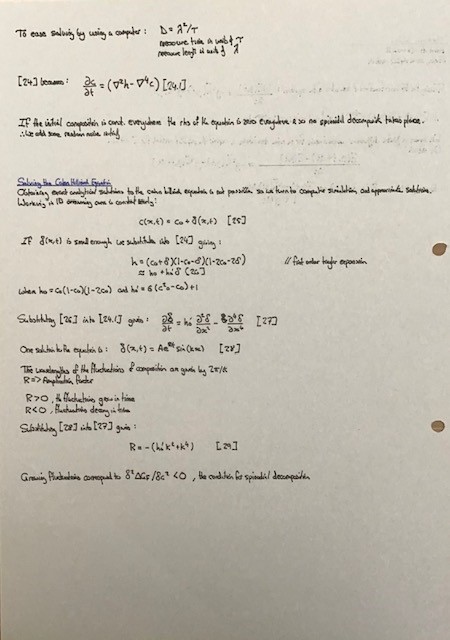 To ease solving by using a computer : D = λ²/τ
measure time in units of τ
measure length in units of λ
[24] becomes : ∂c/∂t = (∇²h - ∇⁴c) [24.1]
If the initial composition is const. everywhere the rhs of the equation is zero everywhere & so no spinodal decomposition takes place.
∴ we add some random noise
Solving the Cahn Hilliard Equation
Obtaining exact analytical solutions to the cahn hilliard equation is not possible so we turn to computer simulation and approximate solutions.
Working in 1D assuming
c(x,t) = c₀ + δ(x,t) [25]
If δ(x,t) is small enough we substitute into [24] giving :
h = (c₀+δ)(1-c₀-δ)(1-2c₀-2δ) // first order taylor expansion
≈ h₀ + h₀'δ [26]
when h₀ = c₀(1-c₀)(1-2c₀) and h₀' = 6(c₀²-c₀)+1
Substituting [26] into [24.1] gives : ∂δ/∂t = h₀' ∂²δ/∂x² - ∂⁴δ/∂x⁴ [27]
One solution to the equation is : δ(x,t) = Ae^Rt sin(kx) [28]
The wavelengths of the fluctuations of composition are given by 2π/k
R => Amplification factor
R>0 , the fluctuations grow in time
R<0 , fluctuations decay in time
Substituting [28] into [27] gives :
R = -(h₀'k²+k⁴) [29]
Growing fluctuations correspond to δ²ΔG/δc² <0 , the condition for spinodal decomposition